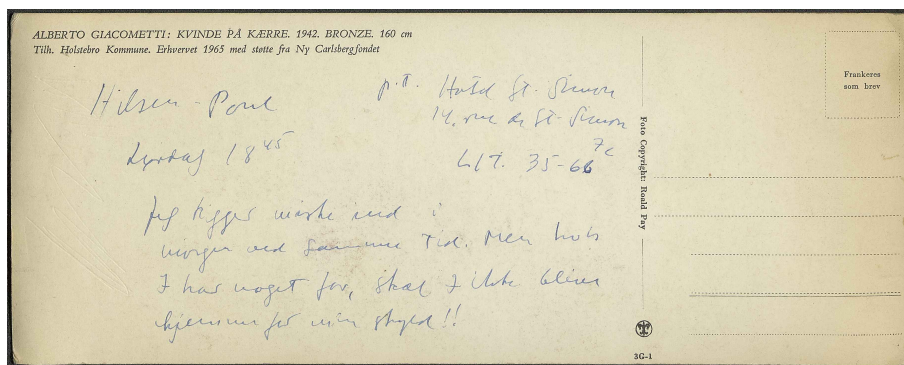 ALBERTO GIACOMETTI: KVINDE PÅ KÆRRE. 1942. BRONZE. 160 cm
Tilh. Holstebro Kommune. Erhvervet 1965 med støtte fra Ny Carlsbergfondet
Frankeres
som brev
Hilsen - Poul
p.t. Hotel St. Simon
14, rue de St. Simon
Lørdag 18 45
35-66
7e
Jeg kigger måske ind i
morgen ved samme tid. Men hvis
I har noget for, skal I ikke blive
hjemme for min skyld!!
Foto Copyright: Roald Pay
3G-1